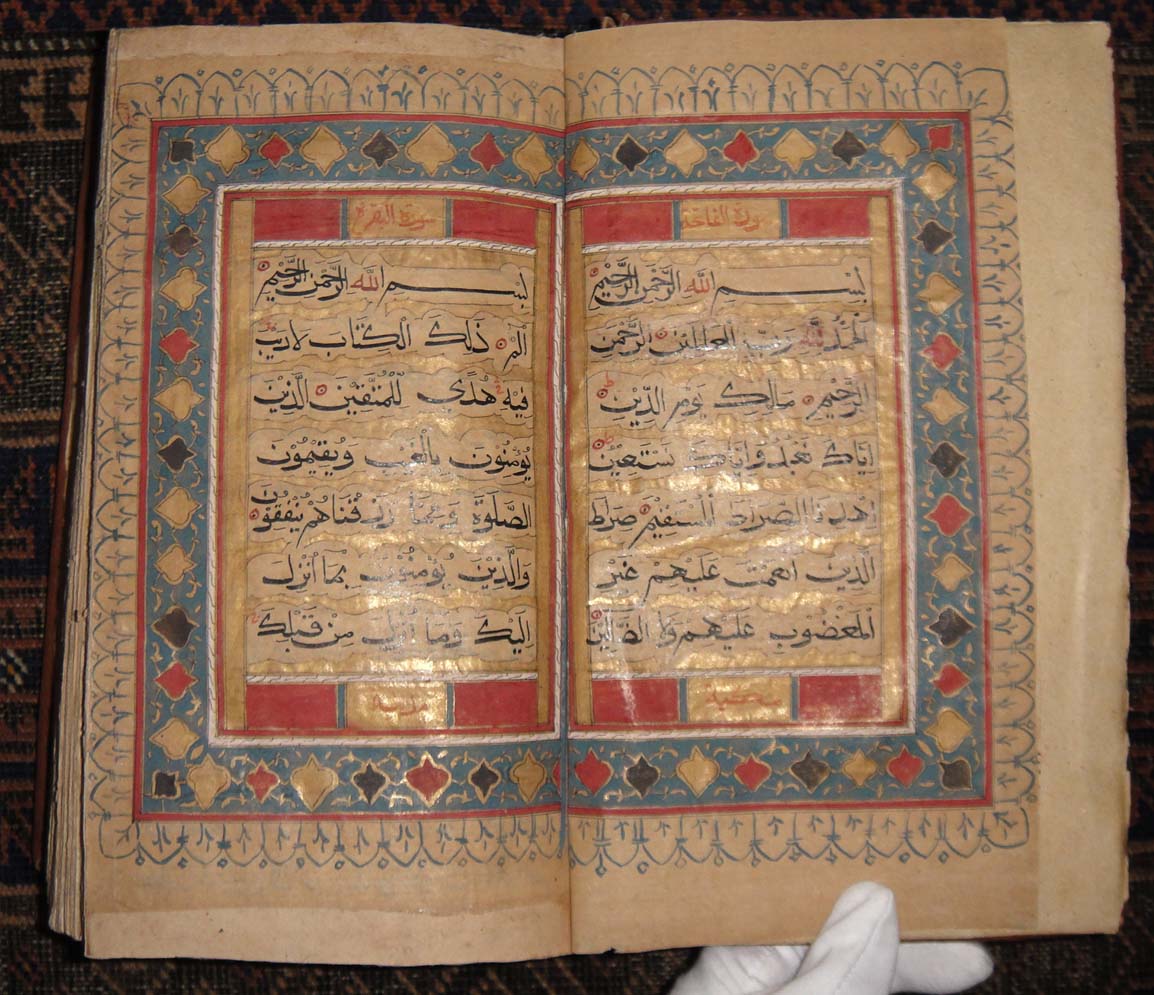 سورة الفاتحة
بِسْمِ اللّٰهِ الرَّحْمٰنِ الرَّحِيْمِ
اَلْحَمْدُ لِلّٰهِ رَبِّ الْعَالَمِيْنَ الرَّحْمٰنِ
الرَّحِيْمِ مَالِكِ يَوْمِ الدِّيْنِ
اِيَّاكَ نَعْبُدُ وَاِيَّاكَ نَسْتَعِيْنُ
اِهْدِنَا الصِّرَاطَ الْمُسْتَقِيْمَ صِرَاطَ
الَّذِيْنَ اَنْعَمْتَ عَلَيْهِمْ غَيْرِ
الْمَغْضُوْبِ عَلَيْهِمْ وَلَا الضَّالِّيْنَ
مكية
سورة البقرة
بِسْمِ اللّٰهِ الرَّحْمٰنِ الرَّحِيْمِ
الٓمٓ ذٰلِكَ الْكِتَابُ لَارَيْبَ
فِيْهِ هُدًى لِّلْمُتَّقِيْنَ الَّذِيْنَ
يُؤْمِنُوْنَ بِالْغَيْبِ وَيُقِيْمُوْنَ
الصَّلٰوةَ وَمِمَّا رَزَقْنَاهُمْ يُنْفِقُوْنَ
وَالَّذِيْنَ يُؤْمِنُوْنَ بِمَا اُنْزِلَ
اِلَيْكَ وَمَا اُنْزِلَ مِنْ قَبْلِكَ
مدنية